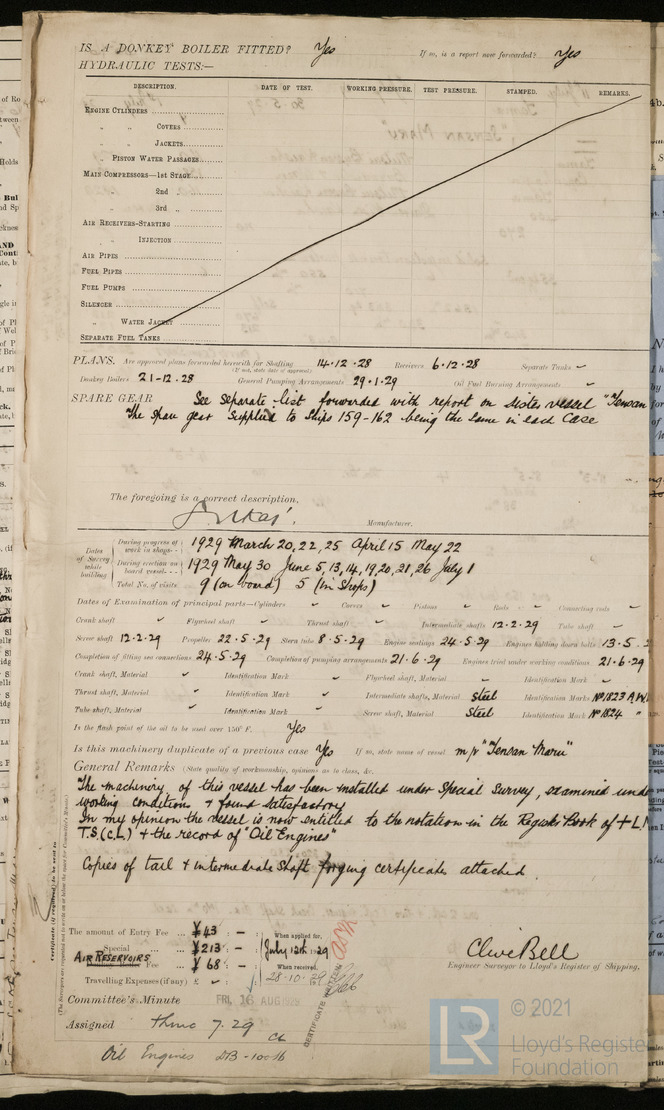 IS A DONKEY BOILER FITTED? Yes If so, is a report now forwarded? Yes
HYDRAULIC TESTS:—
DESCRIPTION. DATE OF TEST. WORKING PRESSURE. TEST PRESSURE. STAMPED. REMARKS.
ENGINE CYLINDERS
" " COVERS
" " JACKETS
" PISTON WATER PASSAGES
MAIN COMPRESSORS—1st STAGE
" 2nd "
" 3rd "
AIR RECEIVERS—STARTING
" INJECTION
AIR PIPES
FUEL PIPES
FUEL PUMPS
SILENCER
" WATER JACKET
SEPARATE FUEL TANKS
PLANS. Are approved plans forwarded herewith for Shafting 14.12.28 Receivers 6.12.28 Separate Tanks ✓
(If not, state date of approval)
Donkey Boilers 21-12-28 General Pumping Arrangements 29.1.29 Oil Fuel Burning Arrangements ✓
SPARE GEAR See separate list forwarded with report on sister vessel "Tensan
The spare gear supplied to Ships 159-162 being the same in each case
The foregoing is a correct description,
Manufacturer.
Dates of Survey while building
During progress of work in shops - - 1929 March 20, 22, 25 April 15 May 22
During erection on board vessel - - 1929 May 30 June 5, 13, 14, 19, 20, 21, 26 July 1
Total No. of visits 9 (on board) 5 (in Shops)
Dates of Examination of principal parts—Cylinders ✓ Covers ✓ Pistons ✓ Rods ✓ Connecting rods ✓
Crank shaft ✓ Flywheel shaft ✓ Thrust shaft ✓ Intermediate shafts 12.2.29 Tube shaft ✓
Screw shaft 12.2.29 Propeller 22.5.29 Stern tube 8.5.29 Engine seatings 24.5.29 Engines holding down bolts 13.5.2
Completion of fitting sea connections 24.5.29 Completion of pumping arrangements 21.6.29 Engines tried under working conditions 21.6.29
Crank shaft, Material ✓ Identification Mark ✓ Flywheel shaft, Material ✓ Identification Mark ✓
Thrust shaft, Material ✓ Identification Mark ✓ Intermediate shafts, Material Steel Identification Marks No 1823 A.W
Tube shaft, Material ✓ Identification Mark ✓ Screw shaft, Material Steel Identification Mark No 1824 "
Is the flash point of the oil to be used over 150° F. Yes
Is this machinery duplicate of a previous case Yes If so, state name of vessel m/v "Tensan Maru"
General Remarks (State quality of workmanship, opinions as to class, &c.
The machinery of this vessel has been installed under Special Survey, examined unde
working conditions & found satisfactory
In my opinion the vessel is now entitled to the notation in the Register Book of + L
T.S. (C.L) & the record of "Oil Engines"
Copies of tail & intermediate shaft forging certificates attached.
Certificate (if required) to be sent to
(The Surveyors are requested not to write on or below the space for Committee's Minute.)
The amount of Entry Fee ... ¥ 43 : — When applied for,
Special ... ¥ 213 : — July 12th 1929
AIR RESERVOIRS Fee ... ¥ 68 : — When received,
Travelling Expenses (if any) £ ✓ : — 28.10.29
Clive Bell
Engineer Surveyor to Lloyd's Register of Shipping.
Committee's Minute FRI. 16 AUG 1929
Assigned + LMC 7.29
CL
Oil Engines DB - 100 lb
CERTIFICATE WRITTEN
© 2021
LR Lloyd's Register
Foundation